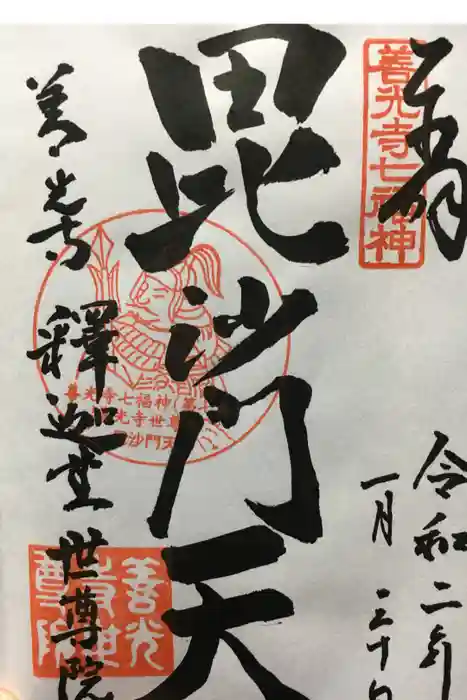 奉拝
善光寺七福神
令和二年
一月二十日
毘沙門天
善光寺 釋迦堂 世尊院
善光寺七福神(第七
光寺世尊
沙門天
善光